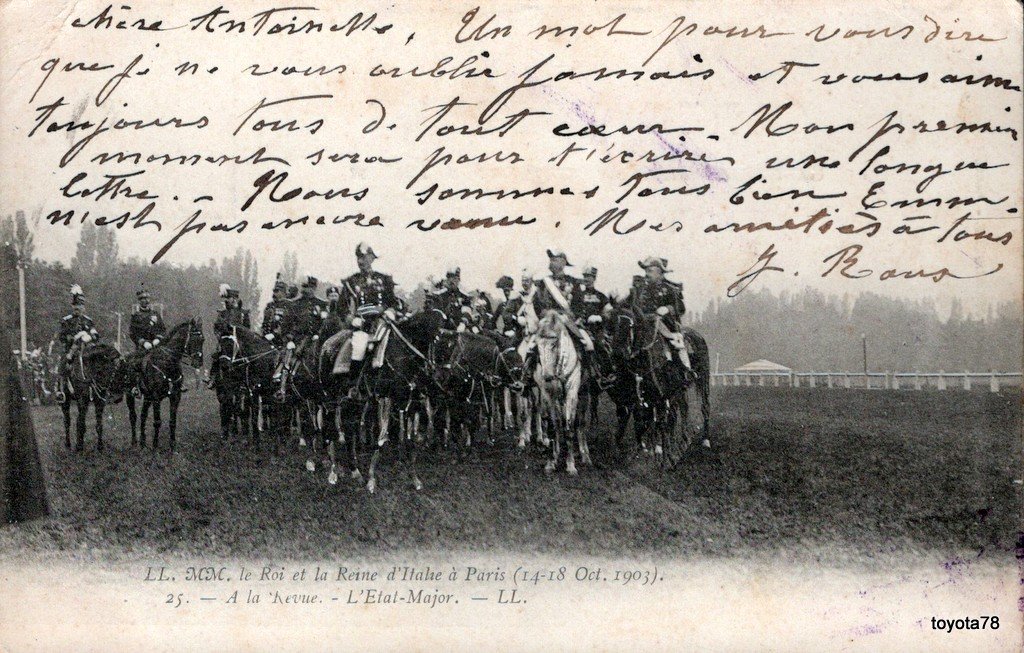 chère Antoinette, Un mot pour vous dire
que je ne vous oublie jamais et vous aime
toujours tous de tout cœur. Mon premier
moment sera pour t'écrire une longue
lettre. - Nous sommes tous bien Emm.
n'est pas encore venu. Mes amitiés à tous
J.
LL. MM. le Roi et la Reine d'Italie à Paris (14-18 Oct. 1903).
25. — A la Revue. - L'Etat-Major. — LL.
toyota78